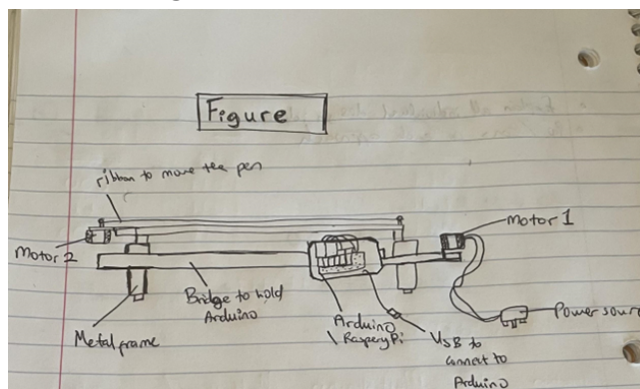 Figure
ribbon to move the pen
Motor 2
Motor 1
Bridge to hold
Arduino
Metal frame
Arduino
\ RasperyPi
USB to
connect to
Arduino
Power sour